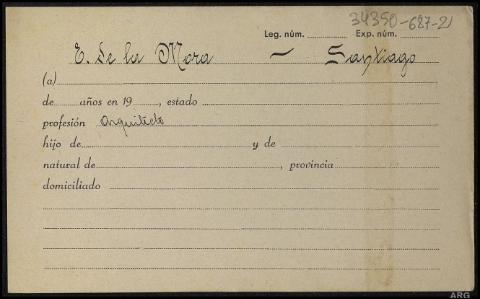 34350-687-21
Leg. núm. Exp. núm.
E. de la Mora — Santiago
(a)
de años en 19, estado
profesión Arquitecto
hijo de y de
natural de, provincia
domiciliado
ARG